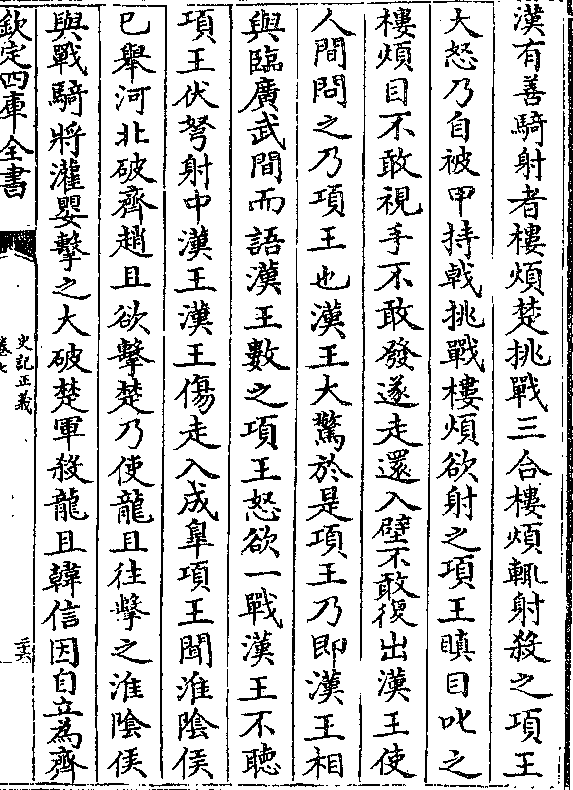 漢有善騎射者樓煩楚挑戰三合樓煩輒射殺之項王
大怒乃自被甲持㦸挑戰樓煩欲射之項王瞋目叱之
樓煩目不敢視手不敢發遂走還入壁不敢復出漢王使
人間問之乃項王也漢王大驚於是項王乃即漢王相
與臨廣武間而語漢王數之項王怒欲一戰漢王不聽
項王伏弩射中漢王漢王傷走入成臯項王聞淮陰侯
已舉河北破齊趙且欲擊楚乃使龍且往擊之淮陰侯
與戰騎將灌嬰擊之大破楚軍殺龍且韓信因自立為齊
欽定四庫全書
史記正義
卷七
三六